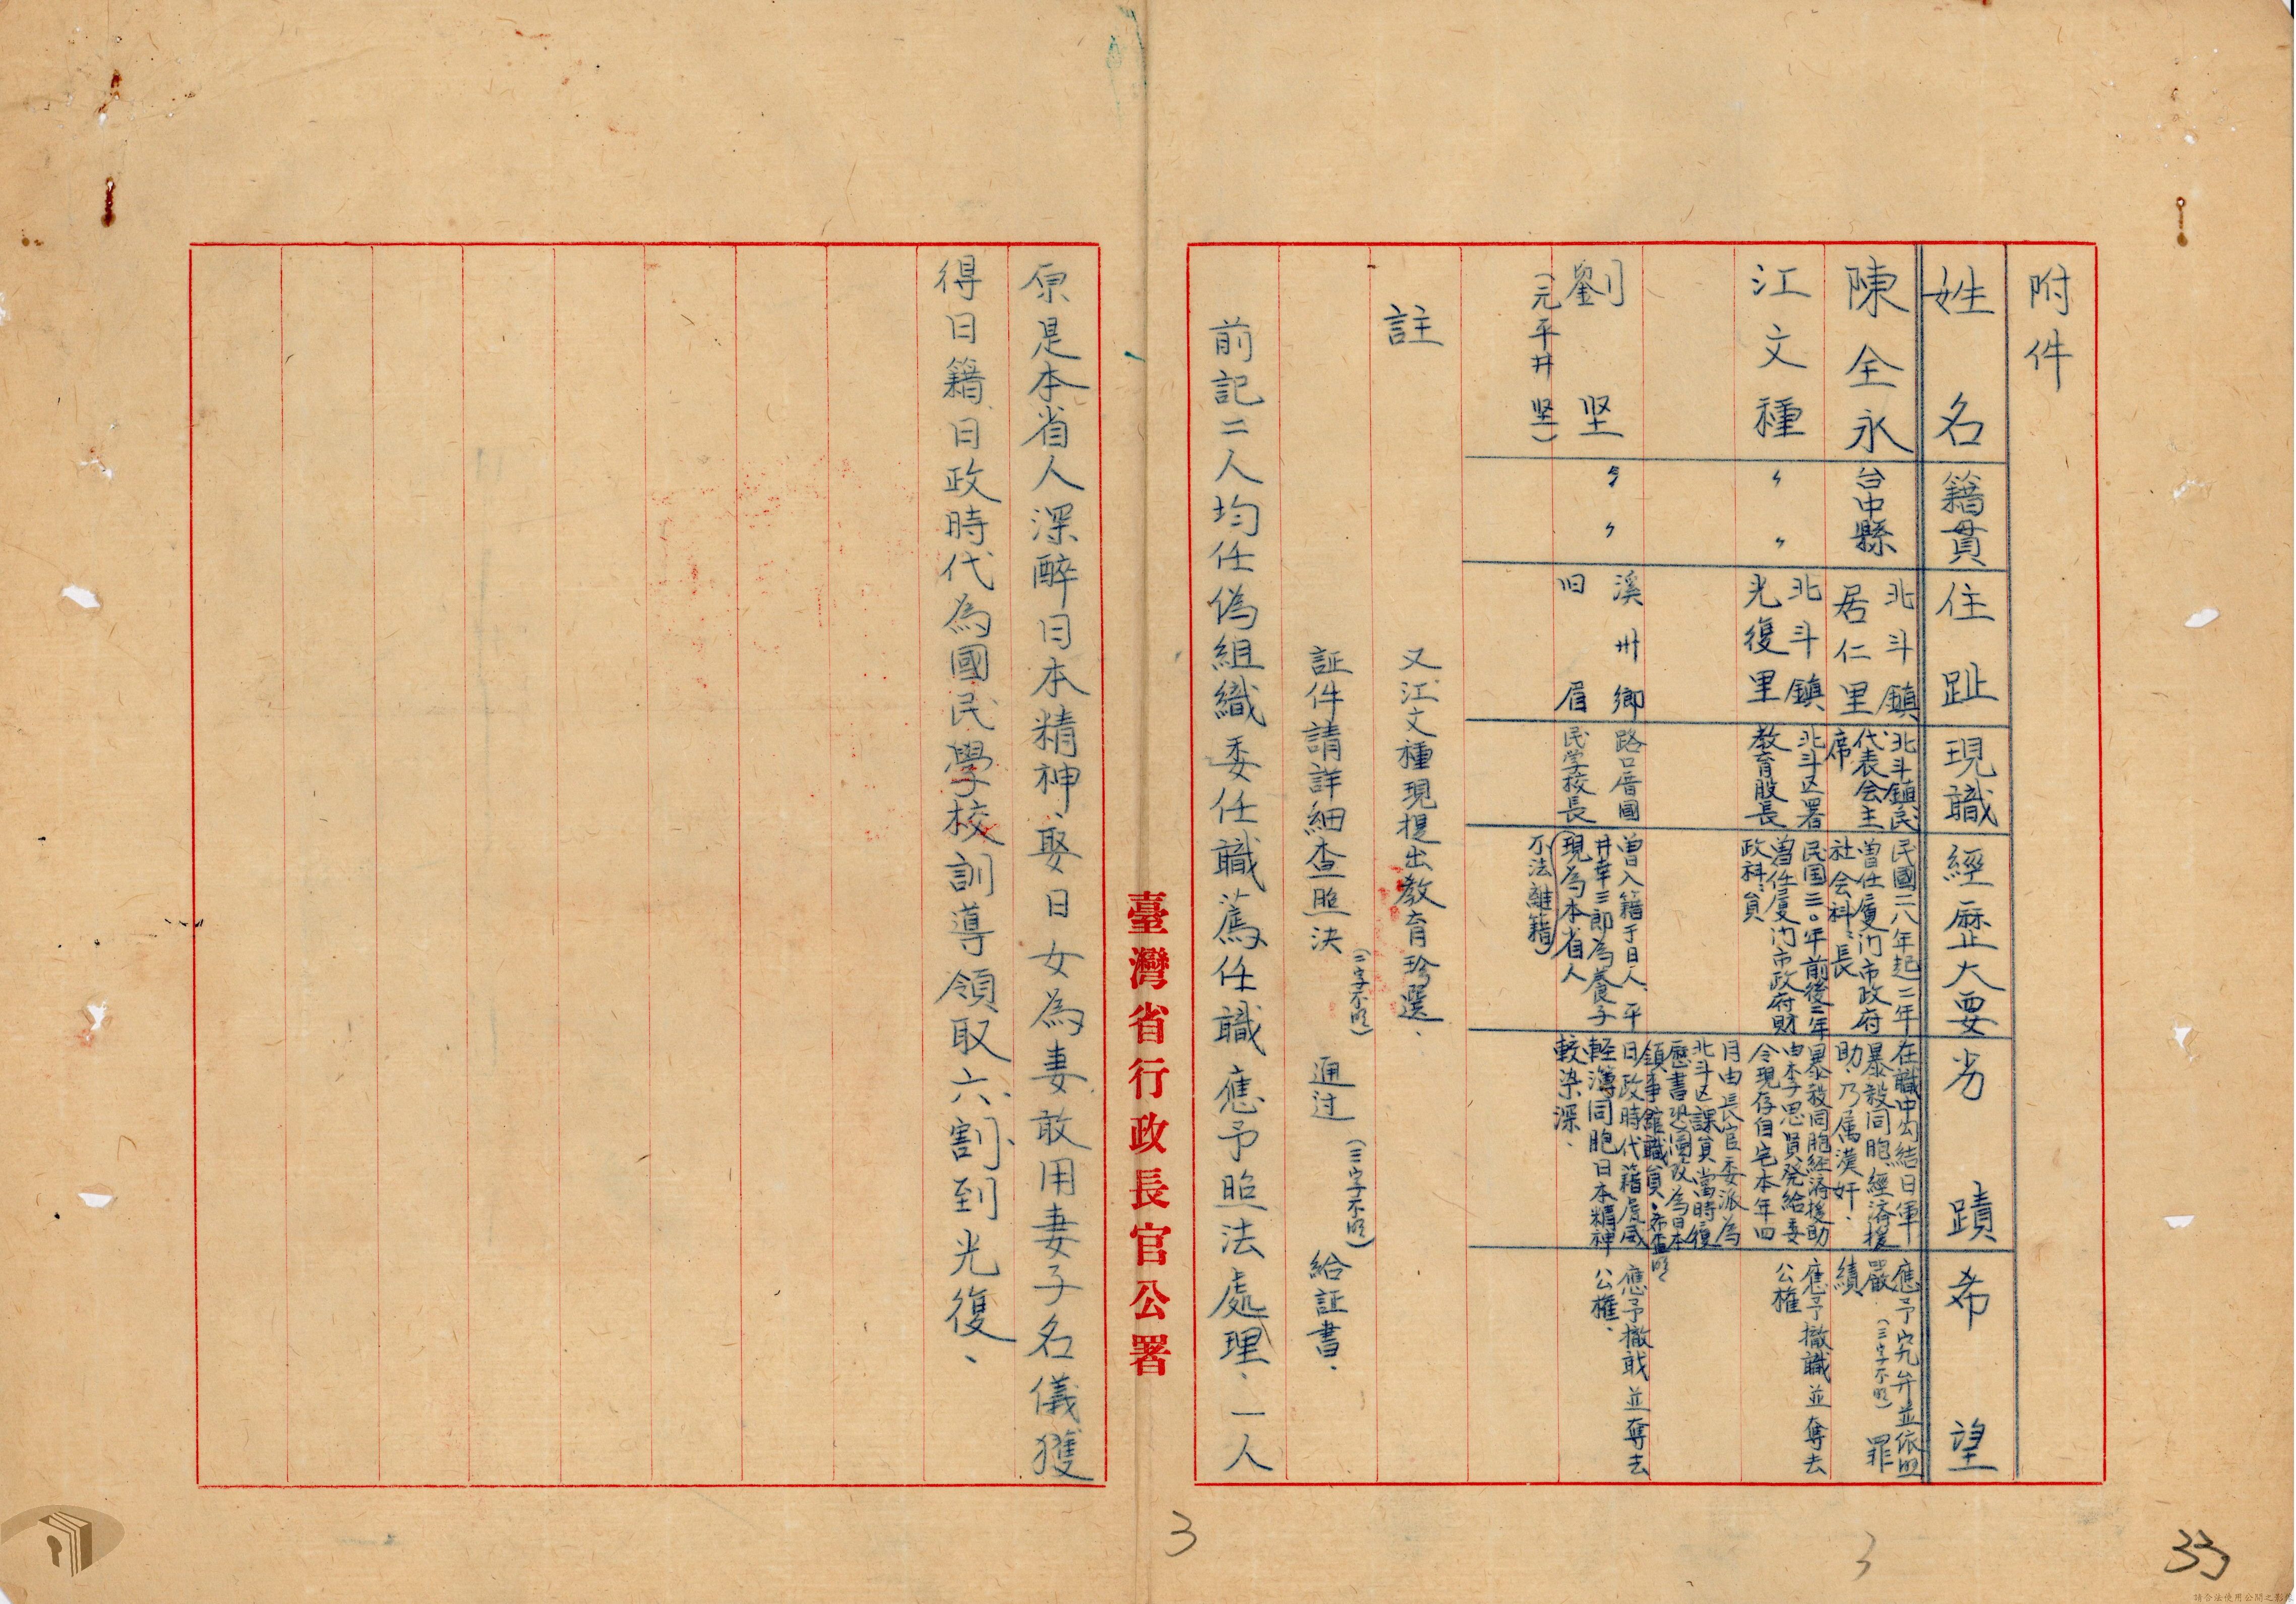 附件
姓名
籍貫
住趾
現職
經歷大要
劣蹟
希望
陳全永
台中縣
北斗鎮
居仁里
北斗鎮民
代表会主
席
民國二八年起二年
曾任厦门市政府
社会科、長
在職中勾結日軍
暴殺同胞經済援
助、乃属漢奸、
應予究弁並依照
嚴(三字不明)罪
績
江文種
〃〃
北斗鎮
光復里
北斗区署
教育股長
民国三〇年前後三年
曽任厦门市政府財
政科、員
暴殺同胞経済援助
由李思賢発給委
令現存自宅本年四
月由長官委派為
北斗区課員當時復
歷書恐濁改為日本
領事館職員、希査明
應予撤職並奪去
公権
劉坚
(元平井坚)
〃〃
溪州鄉
旧眉
路口厝國
民学校長
曽入籍于日人平
井幸三郎為養子
現為本省人
不法離籍)
日政時代藉虎威
軽薄同胞日本精神
較染深、
應予撤戝並奪去
公權、
註
又江文種現提出教育珍選、
証件請詳細查照決(二字不明)通过(三字不明)給証書、
前記二人均任偽組織委任職薦任職應予照法處理、一人
臺灣省行政長官公署
原是本省人深醉日本精神、娶日女為妻敢用妻子名儀獲
得日籍日政時代為國民學校訓導領取六割到光復、
3
3
33
請合法使用公開之影像